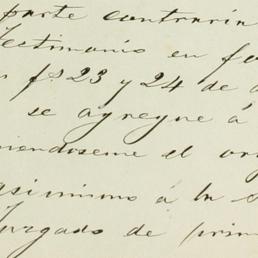 parte contraria
Testimonio en fo
fs 23 y 24 de
se agregue á
niendoseme el ori
asimismo á la s
Juzgado de prim